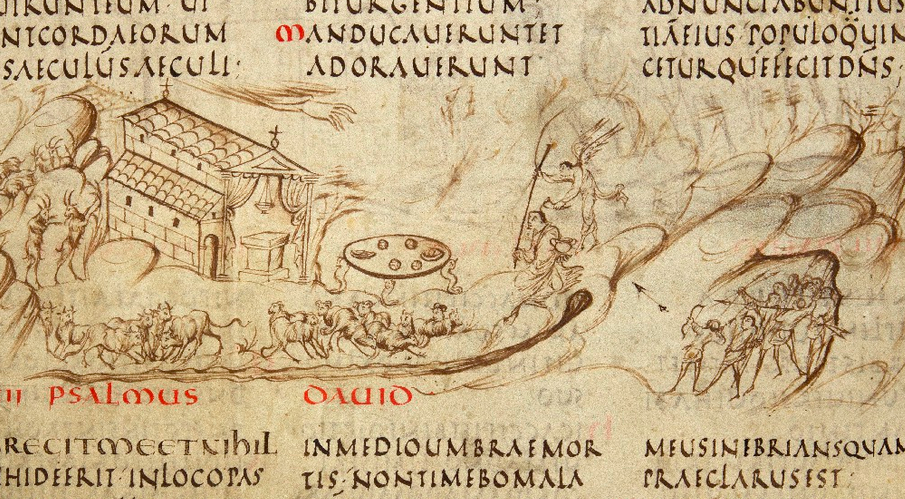 NTCORDAEORUM
SAECULUSAECULI·
BITURGENTIUM·
MANDUCAUERUNTET
ADORAUERUNT
ADNUNCIABUNTIUS
TIĀEIUS POPULOQUIN
CETURQUEFECITDN̄S·
II PSALMUS DAUID
RECITMEETNIHIL
HIDEERIT·INLOCOPAS
INMEDIOUMBRAEMOR
TIS·NONTIMEBOMALA
MEUSINEBRIANSQUAM
PRAECLARUSEST·